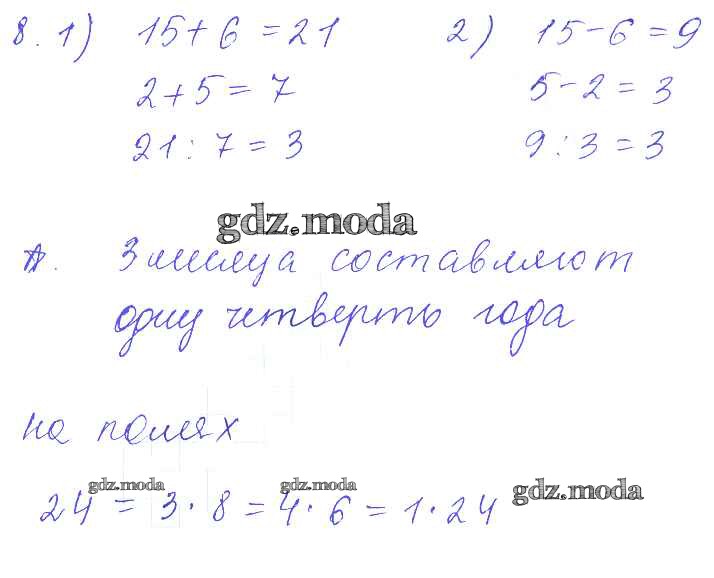 8. 1) 15 + 6 = 21 2) 15 - 6 = 9
2 + 5 = 7 5 - 2 = 3
21 : 7 = 3 9 : 3 = 3
gdz.moda
А. 3 месяца составляют
одну четверть года
на полях
gdz.moda gdz.moda gdz.moda
24 = 3 · 8 = 4 · 6 = 1 · 24